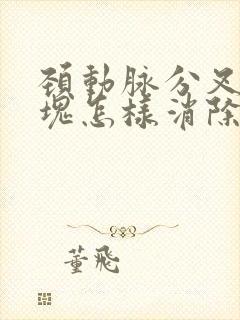 頚動脉分叉
塊怎樣消除
董飛